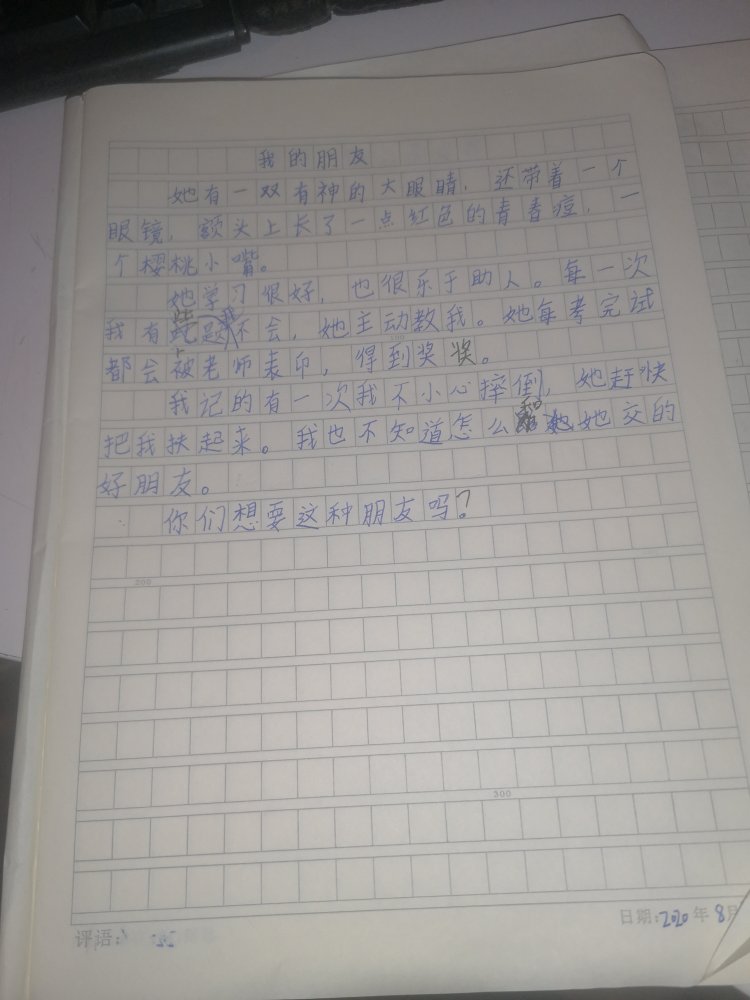 我的朋友
她有一双有神的大眼睛，还带着一个
眼镜，额头上长了一点红色的青春痘，一
个樱桃小嘴。
她学习很好，也很乐于助人。每一次
我有些题我不会，她主动教我。她每考完试
都会被老师表印，得到奖奖。
我记的有一次我不小心摔倒，她赶快
把我扶起来。我也不知道怎么和她交的
好朋友。
你们想要这种朋友吗？
200
300
评语：
日期：2020年8月